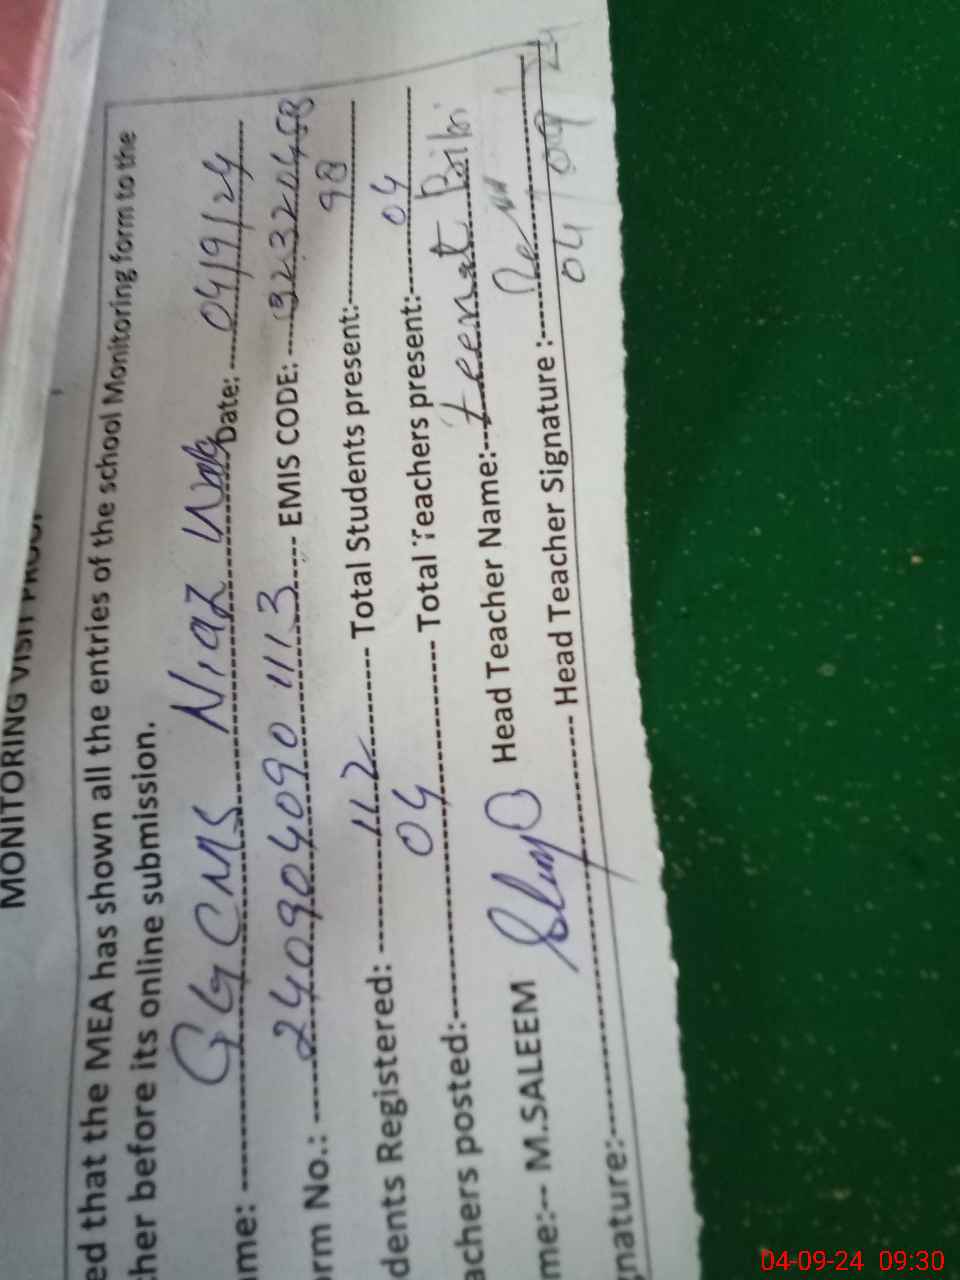 MONITORING VISIT PROOF
ed that the MEA has shown all the entries of the school Monitoring form to the
cher before its online submission.
ame: GGCMS Niaz Wala Date: 04/9/24
orm No.: 2409040901113 EMIS CODE: 32320458
dents Registered: 112 Total Students present: 98
achers posted: 04 Total Teachers present: 04
me:-- M.SALEEM Head Teacher Name: Zeenat Bibi
gnature: Head Teacher Signature :
04/09/24
04-09-24 09:30